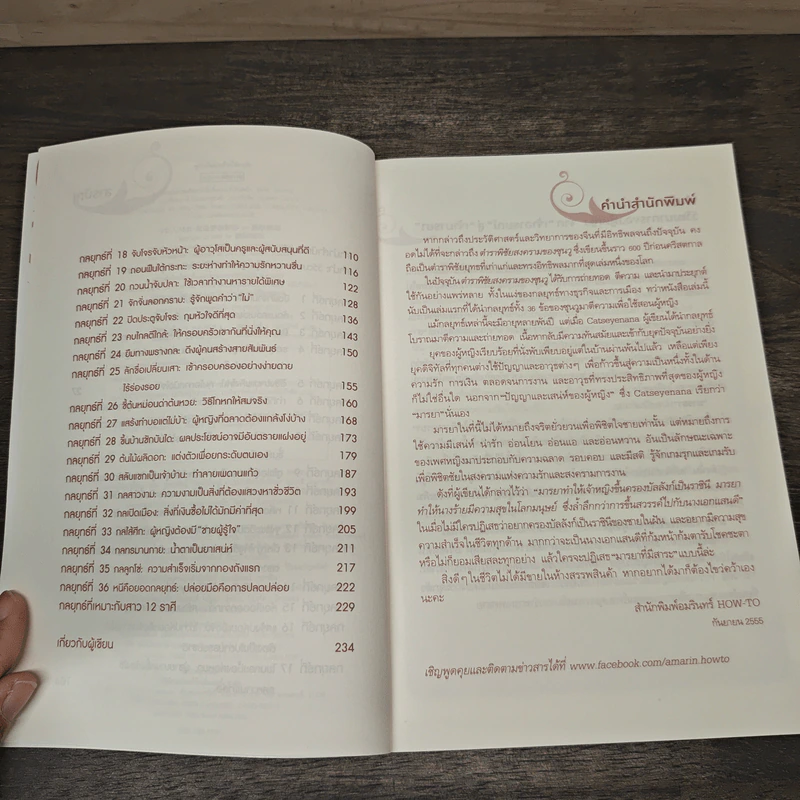 กลยุทธ์ที่ 18 จับโจรจับหัวหน้า: ผู้อาวุโสเป็นครูและผู้สนับสนุนที่ดี 110
กลยุทธ์ที่ 19 ถอนฟืนใต้กระทะ: ระยะห่างทำให้ความรักหวานชื่น 116
กลยุทธ์ที่ 20 กวนน้ำจับปลา: ใช้เวลาทำงานหารายได้พิเศษ 122
กลยุทธ์ที่ 21 จักจั่นลอกคราบ: รู้จักพูดคำว่า"ไม่" 128
กลยุทธ์ที่ 22 ปิดประตูจับโจร: กุมหัวใจที่สุด 136
กลยุทธ์ที่ 23 คบไกลตีใกล้: ให้ครอบครัวเขากันที่นั่งให้คุณ 143
กลยุทธ์ที่ 24 ยืมทางพรางกล: ดึงผู้คนสร้างสายสัมพันธ์ 150
กลยุทธ์ที่ 25 ลักขื่อเปลี่ยนเสา: เข้าครอบครองอย่างง่ายดาย
ไร้ร่องรอย 155
กลยุทธ์ที่ 26 ชี้ต้นหม่อนด่าต้นหวย: วิธีโกหกให้สมจริง 160
กลยุทธ์ที่ 27 แสร้งทำบอแต่ไม่บ้า: ผู้หญิงที่ฉลาดต้องแกล้งโง่บ้าง 168
กลยุทธ์ที่ 28 ขึ้นบ้านชักบันได: ผลประโยชน์อาจมีอันตรายแฝงอยู่ 173
กลยุทธ์ที่ 29 ต้นไม้ผลิดอก: แต่งตัวเพื่อยกระดับตนเอง 179
กลยุทธ์ที่ 30 สลับแขกเป็นเจ้าบ้าน: ทำลายเพดานแก้ว 187
กลยุทธ์ที่ 31 กลสาวงาม: ความงามเป็นสิ่งที่ต้องแสวงหาชั่วชีวิต 193
กลยุทธ์ที่ 32 กลเปิดเมือง: สิ่งที่เงินซื้อไม่ได้มักมีค่าที่สุด 199
กลยุทธ์ที่ 33 กลไส้ศึก: ผู้หญิงต้องมี"ชายผู้รู้ใจ" 205
กลยุทธ์ที่ 34 กลทรมานกาย: น้ำตาเป็นยาเสน่ห์ 211
กลยุทธ์ที่ 35 กลลูกโซ่: ความสำเร็จเริ่มจากกองถังแรก 217
กลยุทธ์ที่ 36 หนีคือยอดกลยุทธ์: ปล่อยมือคือการปลดปล่อย 222
กลยุทธ์ที่เหมาะกับสาว 12 ราศี 229
เกี่ยวกับผู้เขียน 234
คำนำสำนักพิมพ์
หากกล่าวถึงประวัติศาสตร์และวิทยาการของจีนที่มีอิทธิพลจนถึงปัจจุบัน คง
อดไม่ได้ที่จะกล่าวถึง ตำราพิชัยสงครามของซุนวู ซึ่งเขียนขึ้นราว 600 ปีก่อนคริสตกาล
ถือเป็นตำราพิชัยยุทธที่เก่าแก่และทรงอิทธิพลมากที่สุดเล่มหนึ่งของโลก
ในปัจจุบัน ตำราพิชัยสงครามของซุนวู ได้รับการถ่ายทอด ตีความ และนำมาประยุกต์
ใช้กันอย่างแพร่หลาย ทั้งในแง่ของกลยุทธ์ทางธุรกิจและการเมือง ทว่าหนังสือเล่มนี้
นับเป็นเล่มแรกที่ได้นำกลยุทธ์ทั้ง 36 ข้อของซุนวูมาตีความเพื่อใช้สอนผู้หญิง
แม้กลยุทธ์เหล่านี้จะมีอายุหลายพันปี แต่เมื่อ Catseyenana ผู้เขียนได้นำกลยุทธ์
โบราณมาตีความและถ่ายทอด เนื้อหากลับมีความทันสมัยและเข้ากับยุคปัจจุบันอย่างยิ่ง
ยุคของผู้หญิงเรียบร้อยที่นั่งพับเพียบอยู่แต่ในบ้านผ่านพ้นไปแล้ว เหลือแต่เพียง
ยุคดิจิทัลที่ทุกคนต่างใช้ปัญญาและอาวุธต่างๆ เพื่อก้าวขึ้นสู่ความเป็นหนึ่งทั้งในด้าน
ความรัก การเงิน ตลอดจนการงาน และอาวุธที่ทรงประสิทธิภาพที่สุดของผู้หญิง
ก็ไม่ใช่อื่นใด นอกจาก"ปัญญาและเสน่ห์ของผู้หญิง" ซึ่ง Catseyenana เรียกว่า
"มารยา"นั่นเอง
มารยาในที่นี้ไม่ได้หมายถึงจริตยั่วยวนเพื่อพิชิตใจชายเท่านั้น แต่หมายถึงการ
ใช้ความมีเสน่ห์ น่ารัก อ่อนโยน อ่อนแอ และอ่อนหวาน อันเป็นลักษณะเฉพาะ
ของเพศหญิงมาประกอบกับความฉลาด รอบคอบ และมีสติ รู้จักเกมรุกและเกมรับ
เพื่อพิชิตชัยในสงครามแห่งความรักและสงครามการงาน
ดังที่ผู้เขียนได้กล่าวไว้ว่า "มารยาทำให้เจ้าหญิงขึ้นครองบัลลังก์เป็นราชินี มารยา
ทำให้นางร้ายมีความสุขในโลกมนุษย์ ซึ่งล้ำลึกกว่าการขึ้นสวรรค์ไปกับนางเอกแสนดี"
ในเมื่อไม่มีใครปฏิเสธว่าอยากครองบัลลังก์เป็นราชินีของชายในฝัน และอยากมีความสุข
ความสำเร็จในชีวิตทุกด้าน มากกว่าจะเป็นนางเอกแสนดีที่ก้มหน้าก้มตารับโชคชะตา
หรือไม่ก็ยอมเสียสละทุกอย่าง แล้วใครจะปฏิเสธ"มารยาที่มีสาระ"แบบนี้ล่ะ
สิ่งดีๆ ในชีวิตไม่ได้มีขายในห้างสรรพสินค้า หากอยากได้มาก็ต้องไขว่คว้าเอง
นะคะ
สำนักพิมพ์อมรินทร์ HOW-TO
กันยายน 2555
เชิญพูดคุยและติดตามข่าวสารได้ที่ www.facebook.com/amarin.howto